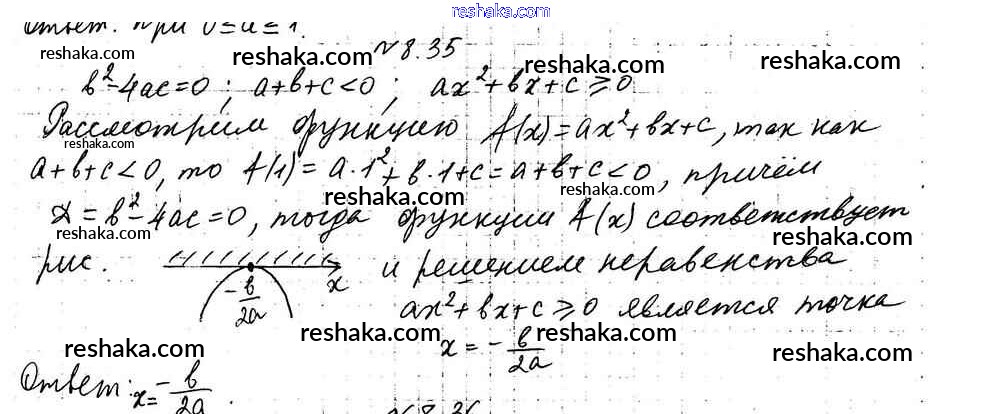 reshaka.com
Ответ: при 0 ≤ a ≤ 1.
reshaka.com reshaka.com
№ 8.35
reshaka.com reshaka.com
b² - 4ac = 0 ; a + b + c < 0 ; ax² + bx + c ≥ 0
Рассмотрим функцию f(x) = ax² + bx + c, так как
reshaka.com
a + b + c < 0, то f(1) = a · 1² + b · 1 + c = a + b + c < 0, причём
reshaka.com reshaka.com
D = b² - 4ac = 0, тогда функции f(x) соответствует
reshaka.com reshaka.com
рис. x и решением неравенства
-b/2a ax² + bx + c ≥ 0 является точка
reshaka.com reshaka.com reshaka.com
x = -b/2a
reshaka.com reshaka.com
Ответ: x = -b/2a.